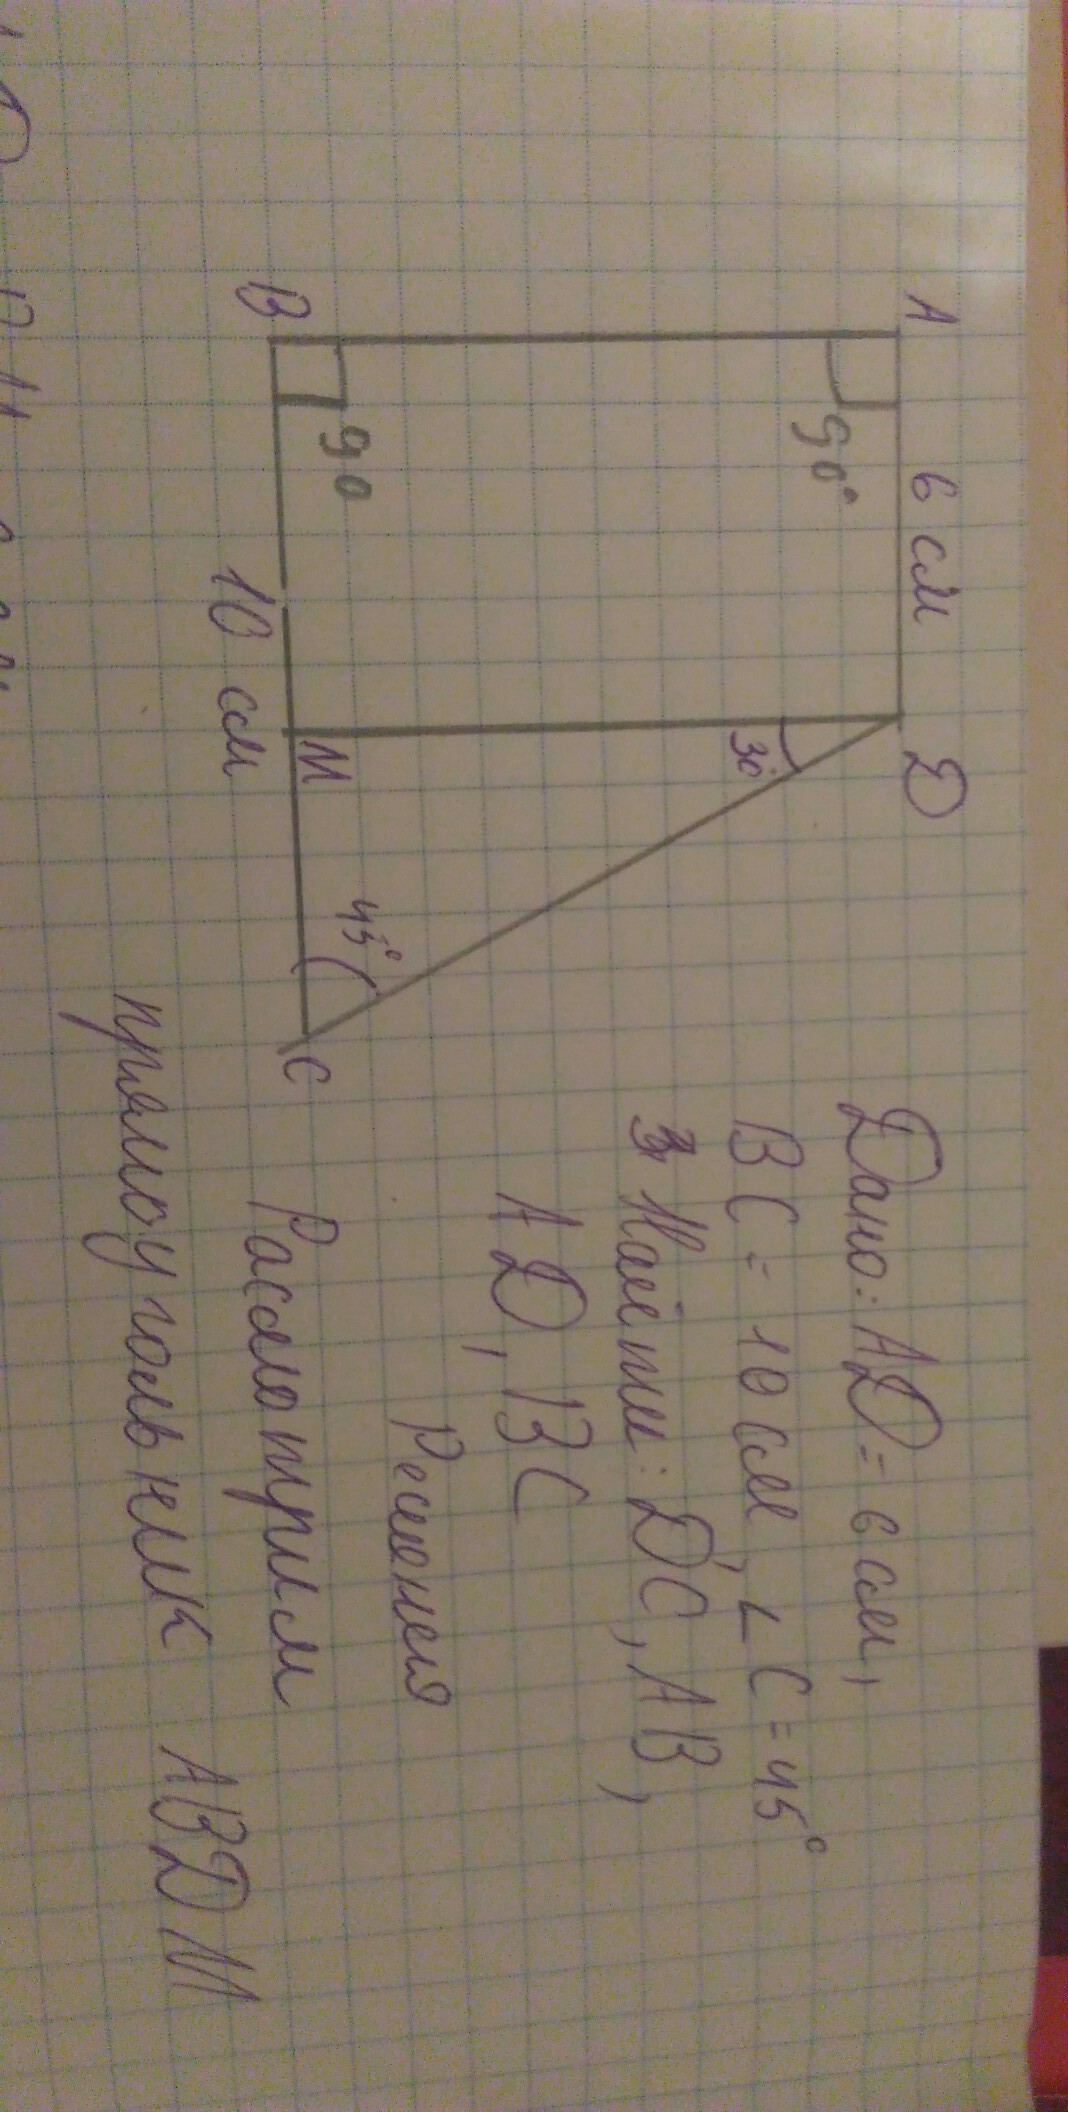 A 6 см D
90°
30°
90
45°
B M C
10 см
Дано: AD = 6 см,
BC = 10 см, ∠C = 45°
Найти: DC, AB,
AD, BC
Решения
Расмотрим
прямоугольник ABDM